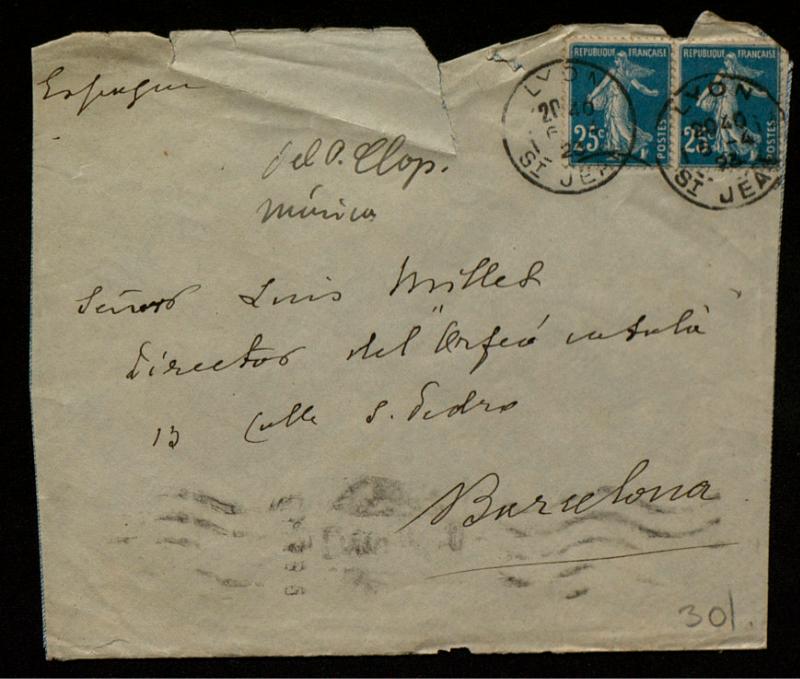 Espagne
REPUBLIQUE FRANÇAISE
25c
POSTES
REPUBLIQUE FRANÇAISE
25
POSTES
LYON
20 40
ST JEAN
LYON
20 40
6 -4
23
ST JEAN
del P. Clop.
música
Señor Luis Millet
Director del "Orfeó català
13 Calle S. Pedro
Barcelona
301.